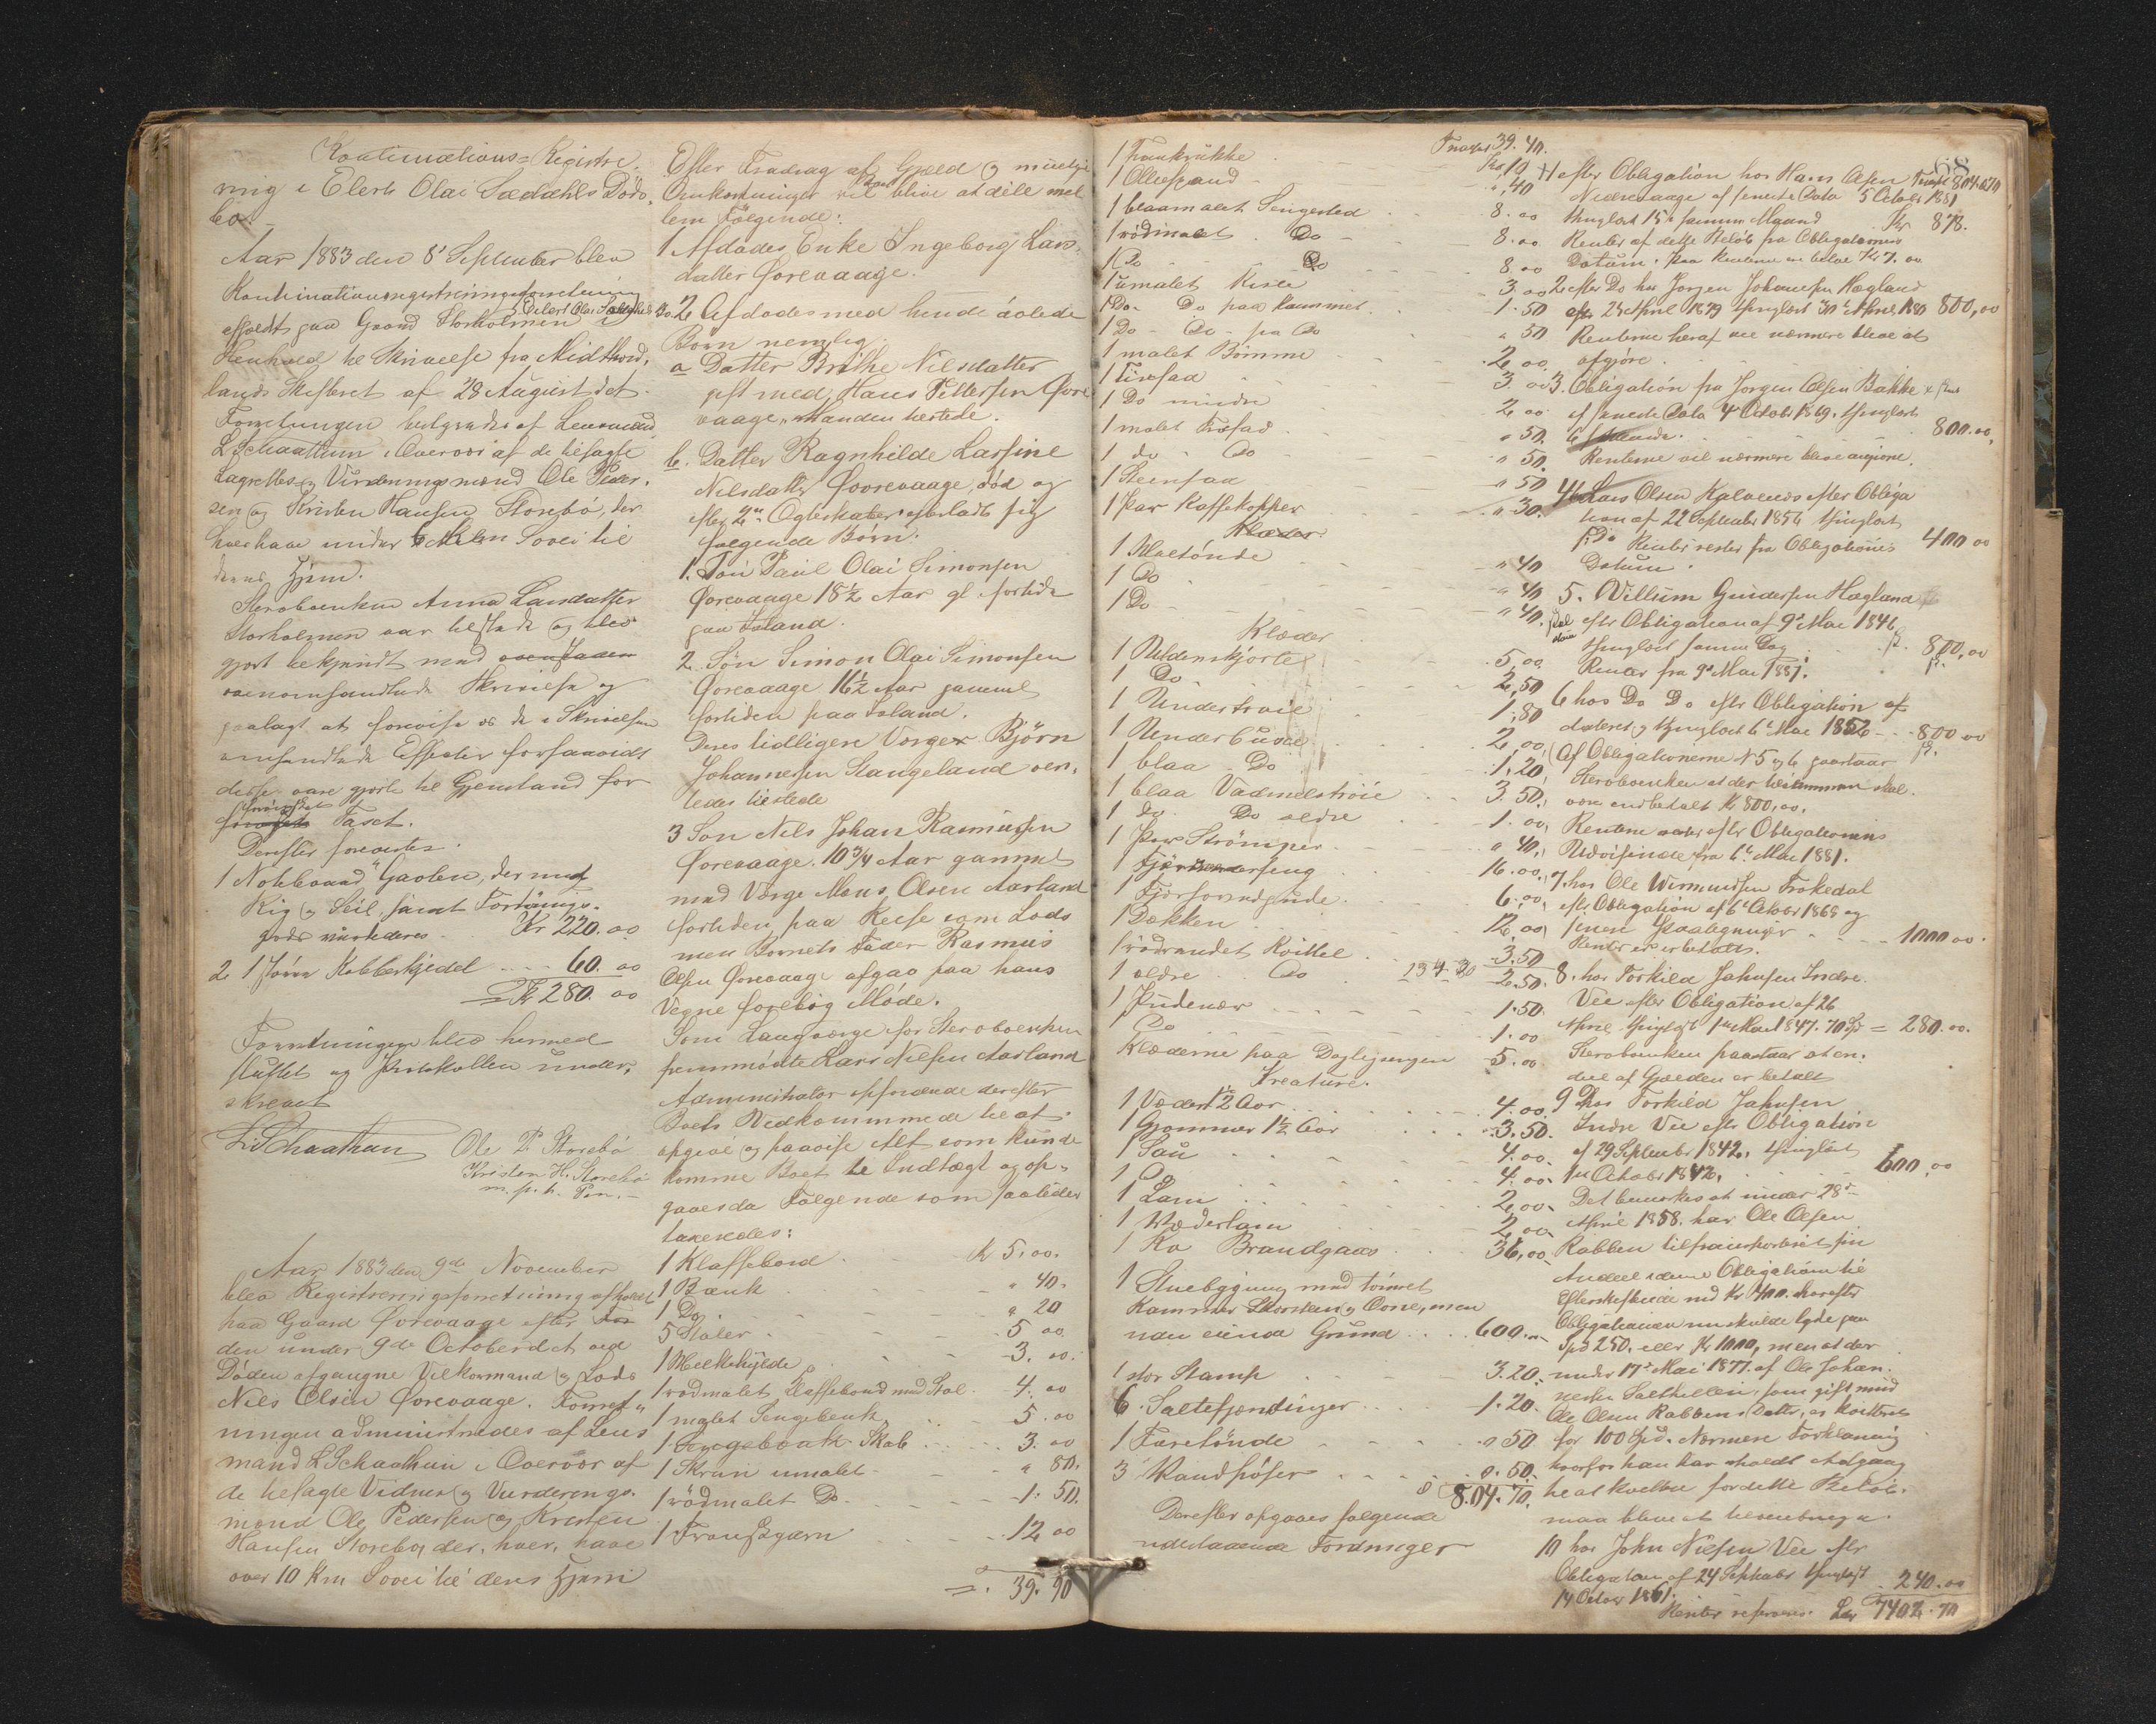 Kontinuations=Registre
ring i Elert Olai Sædahls Døds,
bo
Aar 1883 den 8de September blev
Kontinuationsregistreringsforretning
i Eilert Olai Sædahls Do
afholdt paa Gaard Storholmen i
Henhold til Skrivelse fra Midthord,
lands Skifteret af 28 August det
Forretningen betgredes af Lensmand
L Schaathun i Overvær af de tilsagte
Lagrettes og Vurderingsmænd Ole Peder,
sen og Kristen Hansen Storebö, der
hver have under Sovei til
deres Hjem.
Sterboenken Anna Larsdatter
Storholmen var tilstede og blev
gjort bekjendt med
ovenomhandlede Skrivelse og
paalagt at forevise os de i Skrivelsen
omhandlede Effecter forsaavidt
disse vare gjort til Gjenstand for
Taxt.
Derefter forevistes.
1 Notebaad "Gaolen, der med
Rig og Seil samt Fortøinings-
gods vurderes Kr 220.00
2 1 større Kobberkjedel .... 60.00
= Kr 280.00
Forretningen blev hermed
sluttet og Protokollen under,
skrevet
L Schaathun
Ole P. Storebö
Kristen H. Storebö
m. p. P.
Aar 1883 den 9de November
blev Registreringsforretning afholdt
paa Gaard Forevaage efter
den under 9de October d.A. ved
Døden afgangne Vilkormand og Lods
Nils Olsen Forevaage. Forret,,
ningen administreredes af Lens
mand L Schaathun i Overvær af
de tilsagte Vidner og Vurderings-
mænd Ole Pedersen og Kristen
Hansen Storebø, der, hver, have
over 10 Km Sovei til deres Hjem
Efter Fradrag af Gjæld og muelige
Omkostninger vil Boet blive at dele mel
lem Følgende:
1 Afdødes Enke Ingeborg Lars,
datter Forevaage.
2 Afdødes med hende avlede
Børn nemlig
a Datter Brithe Nilsdatter
gift med Hans Pettersen Fore
vaage, Manden tilstede.
b. Datter Ragnhilde Larsine
Nilsdatter Foorevaage, død og
efter 2de Ægteskaber efterladt sig
følgende Børn:
1. Søn Paul Olai Simonsen
Forevaage 18½ Aar gl fortiden
paa Island.
2. Søn Simon Olai Simonsen
Forevaage 16½ Aar gammel
fortiden paa Island.
Deres tidligere Verge Björn
Johannesen Stangeland ven,
tedes tilstede
3 Søn Nils Johan Rasmusen
Forevaage. 10¾ Aar gammel
med Verge Mons Olsen Aarland
fortiden paa Reise som Lods
men Barnets Fader Rasmus
Olsen Forevaage afgav paa hans
Vegne forebög Møde.
Som Laugverge for Sterboenken
fremmødte Lars Nilsen Aarland
Administrator opfordrede derefter
Boets Vedkommende til at
opgive og paavise Alt som kunde
komme Boet til Indtægt og op-
gaves da Følgende som saaledes
taxeredes:
1 Klaffebord . K 5.00.
1 Bænk . " 40.
1 Do . " 20
5 Stoler . 5 00
1 Melkehylde . 3. 00.
1 rödmalet Klaffebord med Stol. 4. 00
1 malet Sengebenk . 5. 00
1 Skab .... 3. 00
1 Skrin umalet " 80.
1 rödmalet Do. 1. 50.
1 12 00
= . 39. 90
1 . Kr 10
1 Ollespand " 40
1 blaamalet Sengested 8.00
1 rödmalet Do 8.00
1 Do Do 8.00
1 umalet Kiste 3 00
1 Do - Do paa Kammet 1.50
1 Do - Do - paa Do " 50
1 malet Bömme 2 00
1 3. 00
1 Do mindre 2 00
1 malet " 50.
1 do " Do " 50.
1 " 50
1 Par Kaffekopper " 30.
1 " 40
1 Do " 40
1 Do " 40.
Klæder
1 Uldenskjorte 5,00
1 Do. 2,50
1 Undertröie 1,80
1 Underbuxe 2,00
1 blaa Do 1,20
1 blaa Vadmelströie 3.50
1 do. Do ældre 1.00
1 Par Strömper " 40
1 16.00
1 6.00
1 Dækken 12,00
1 rödrandet Kvittel 3.50
1 ældre Do 2.50
1 1.50
Do 1.00
Klæderne paa Dagligsengen 5.00
Kreature.
1 Væder 1½ Aar 4.00
1 Gjommer 1½ Aar 3.50.
1 Sau 4.00
1 Do 4.00
1 Lam 2,00
1 Væderlam 2,00
1 Ko Brandgaas 36,00
1 Stuebygning med tömret
Kammer Skorsten og Ovne, men
uden eiende Grund .... 600.00
1 stor Stamp 3.20
6 Saltefjerdinger 1.20.
1 " 50
3 0.50.
8.04.70.
Derefter opgaves følgende
udestaaende Fordringer
Transp 39.90.
1 efter Obligation hos Hans Olsen Transp 804.70
Nedrevaage af seneste Data 5 October 1881
thinglæst 15de samme Maand . Kr 878.
Renter af dette Beløb fra Obligationens
Datum. paa Renterne er betalt Kr 7.00
2 efter Do hos Jorgen Johannesen Hægland
af 24 April 1879 thinglæst 30te April 1880 800,00
Renterne heraf vil nærmere blive at
afgjøre.
3. Obligation fra Jorgen Olsen Bakke
af seneste Data 4 Octobr 1869, thinglæst
800.00,
Renterne vil nærmere blive
4. Lars Olsen Kalvenes efter Obliga
tion af 22 September 1856 thinglæst
400 00
Renter rester fra Obligationens
Datum.
5. Villum Gundersen Hægland
efter Obligation af 9de Mai 1846
thinglæst samme Dag 800,00
Renter fra 9de Mai 1881.
6 hos Do Do efter Obligation af
dateret og thinglæst 6te Mai 1852 - - 800 00
(Af Obligationerne N 5 og 6 paastaar
Sterboenken at der tilsammen skal
være indbetalt K 800,00.
Renterne efter Obligationens
Udvisende fra 6te Mai 1881.
7. hos Ole Wermundsen Trokedal
efter Obligation af 6te Octobr 1868 og
senere Paategninger 1000 00
Renter er betalt.
8. hos Torkild Jahnsen Indre
Vie efter Obligation af 26
April thinglæst 1ste Mai 1847. 70 Sp = 280.00.
Sterboenken paastaar at en
deel af Gjælden er betalt
9 hos Torkild Jahnsen
Indre Vie efter Obligation
af 29 September 1842, thinglæst
1ste October 1842. 600,00
Det bemærkes at under 28de
April 1858. har Ole Olsen
Rabben sin
Andeel i denne Obligation til
med K 400. hvorefter
Obligationen nu skulde lyde paa
Spd 250. eller Kr 1000, men at der
under 17de Mai 1877. af Ole Johan-
nesen som gift med
Ole Olsen Rabbens Datter, er kvitteret
for 100 Spd. Nærmere Forklaring
hvorfor han har Adgang
til at kvittere for dette Beløb.
maa blive at
10 hos John Nilsen Vie efter
Obligation af 24 Septembr thinglæst
14 October 1861. 240.00
Renter reserveres. Lar 7402.70